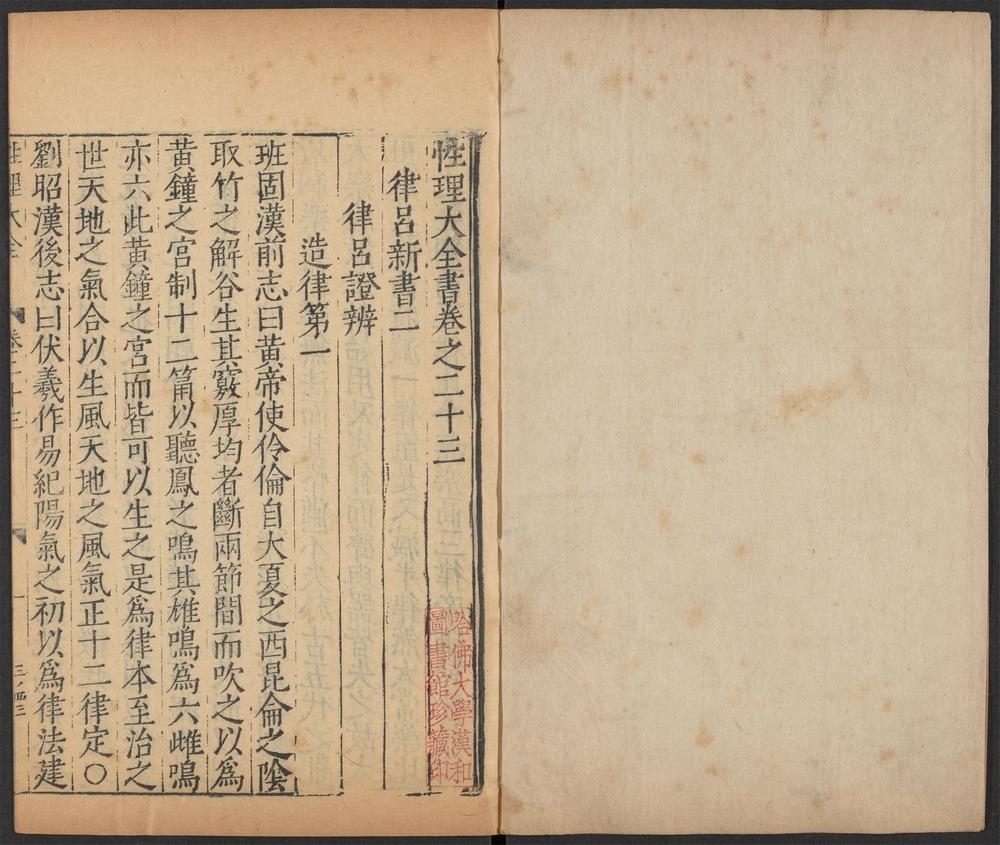 性理大全書卷之二十三
律呂新書二
律呂證辨
造律第一
班固漢前志曰黃帝使伶倫自大夏之西昆侖之陰
取竹之解谷生其竅厚均者斷兩節間而吹之以爲
黃鐘之宮制十二筩以聽鳳之鳴其雄鳴爲六雌鳴
亦六此黃鐘之宮而皆可以生之是爲律本至治之
世天地之氣合以生風天地之風氣正十二律定○
劉昭漢後志曰伏羲作易紀陽氣之初以爲律法建
性理大全
卷二十三
一
哈佛大學漢和
圖書館珍藏印